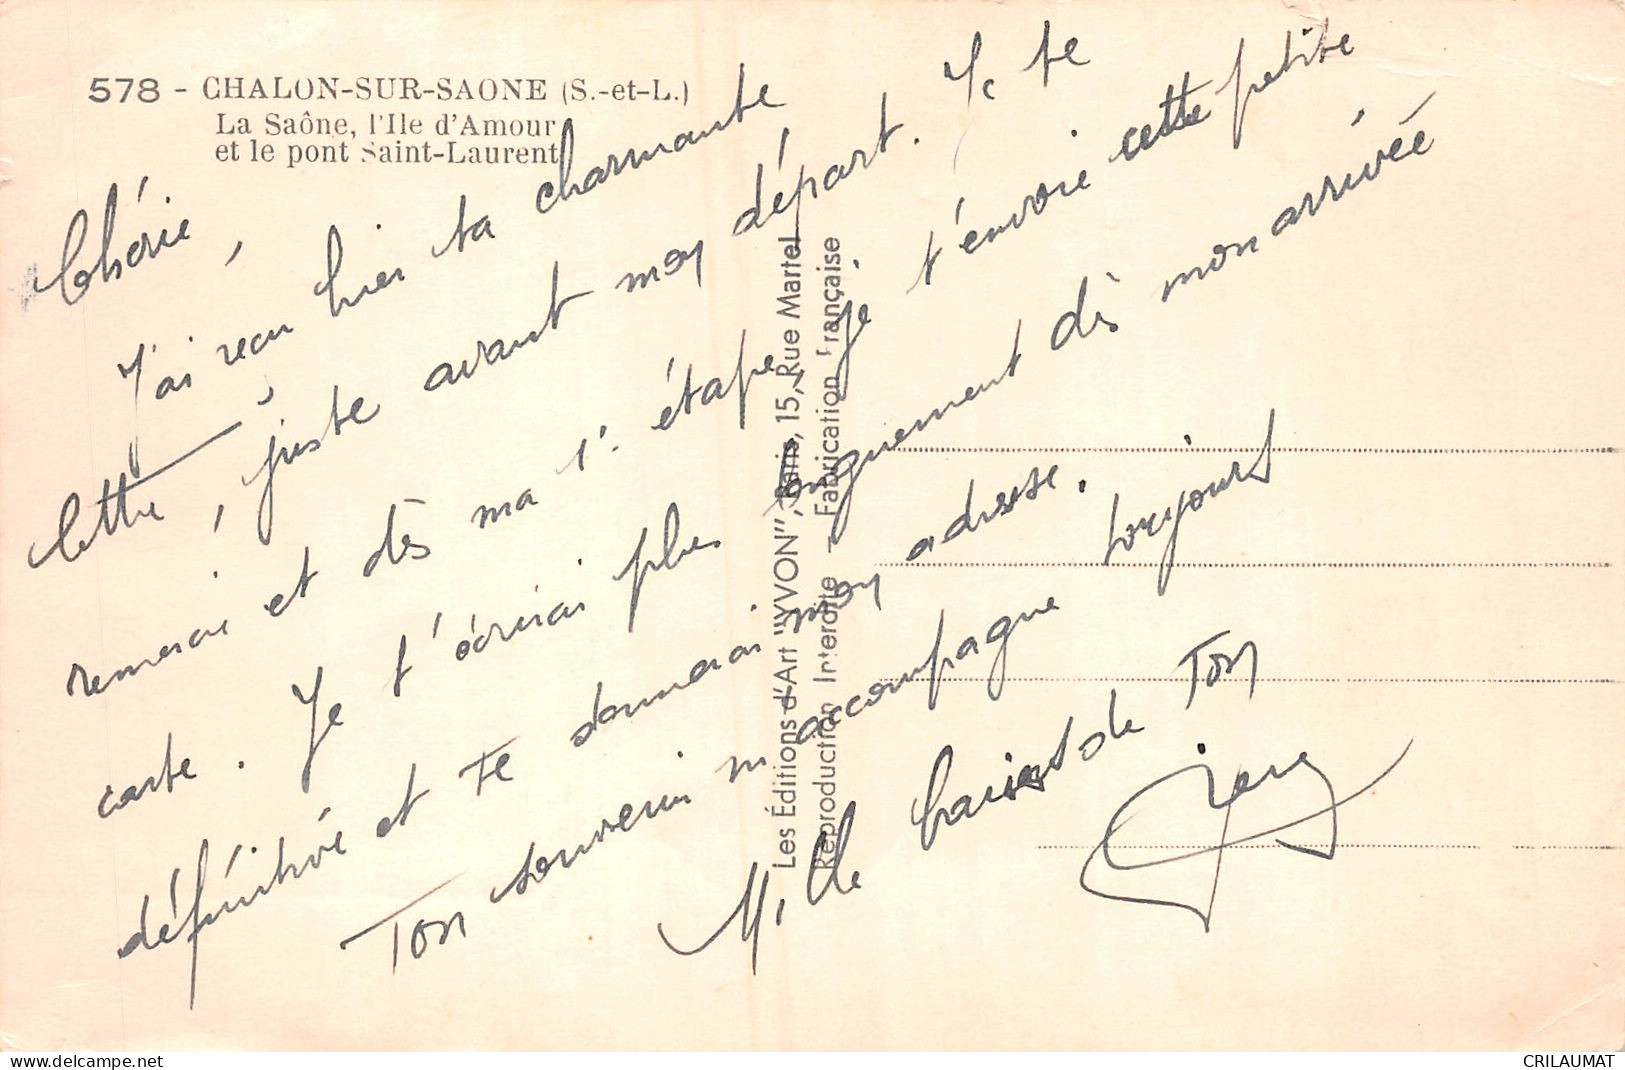 578 - CHALON-SUR-SAONE (S.-et-L.)
La Saône, l'Ile d'Amour
et le pont Saint-Laurent
Chérie,
J'ai reçu hier ta charmante
lettre, juste avant mon départ. Je te
remercie et dès ma 1e étape, je t'envoie cette petite
carte. Je t'écrirai plus longuement dès mon arrivée
définitive et te donnerai mon adresse.
Ton souvenir m'accompagne toujours
Mille baisers de Ton
Les Éditions d'Art "YVON", Paris, 15, Rue Martel
Reproduction Interdite - Fabrication Française
www.delcampe.net
CRILAUMAT